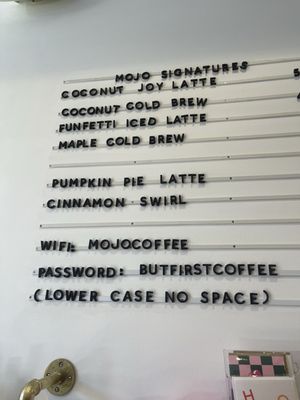 MOJO SIGNATURES
COCONUT JOY LATTE
COCONUT COLD BREW
FUNFETTI ICED LATTE
MAPLE COLD BREW
PUMPKIN PIE LATTE
CINNAMON SWIRL
WIFI: MOJOCOFFEE
PASSWORD: BUTFIRSTCOFFEE
(LOWER CASE NO SPACE)
H O